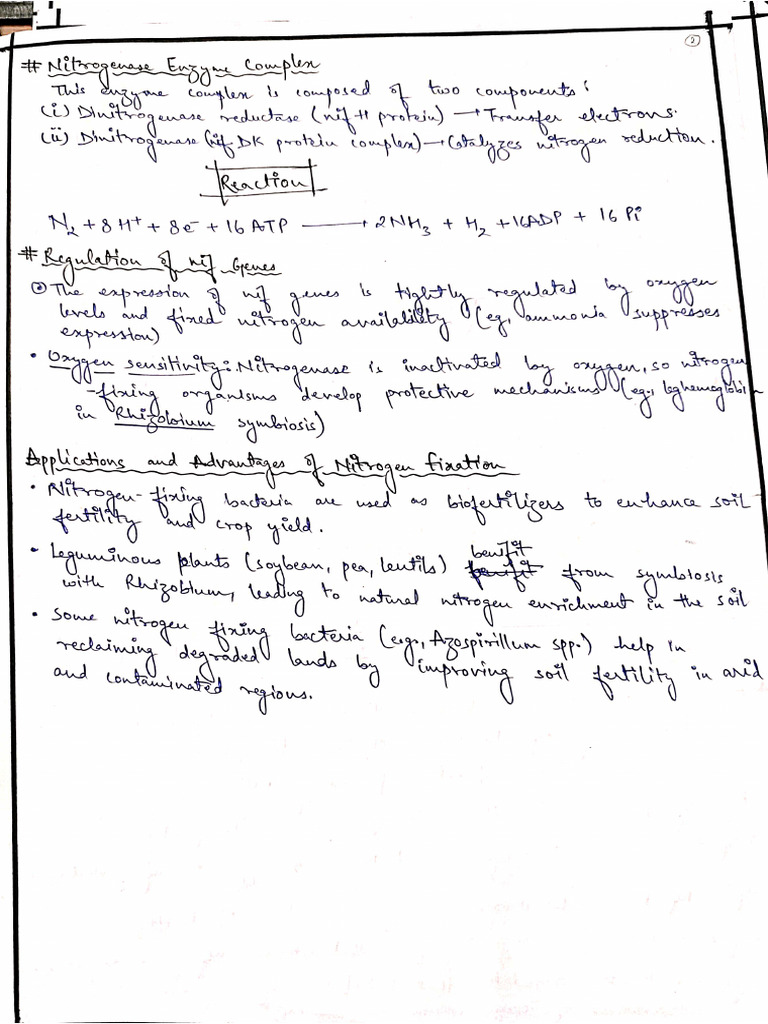 2
# Nitrogenase Enzyme Complex
This enzyme complex is composed of two components:
(i) Dinitrogenase reductase (nif H protein) → Transfer electrons.
(ii) Dinitrogenase (nif DK protein complex) → Catalyzes nitrogen reduction.
Reaction
N₂ + 8H⁺ + 8e⁻ + 16 ATP → 2NH₃ + H₂ + 16ADP + 16 Pi
# Regulation of nif Genes
• The expression of nif genes is tightly regulated by oxygen
levels and fixed nitrogen availability (eg, ammonia suppresses
expression)
• Oxygen sensitivity: Nitrogenase is inactivated by oxygen, so nitrogen
-fixing organisms develop protective mechanisms (eg., leghemoglobin
in Rhizobium symbiosis)
Applications and Advantages of Nitrogen fixation
• Nitrogen-fixing bacteria are used as biofertilizers to enhance soil
fertility and crop yield.
• Leguminous plants (soybean, pea, lentils) benifit from symbiosis
with Rhizobium, leading to natural nitrogen enrichment in the soil
• Some nitrogen fixing bacteria (e.g., Azospirillum spp.) help in
reclaiming degraded lands by improving soil fertility in arid
and contaminated regions.